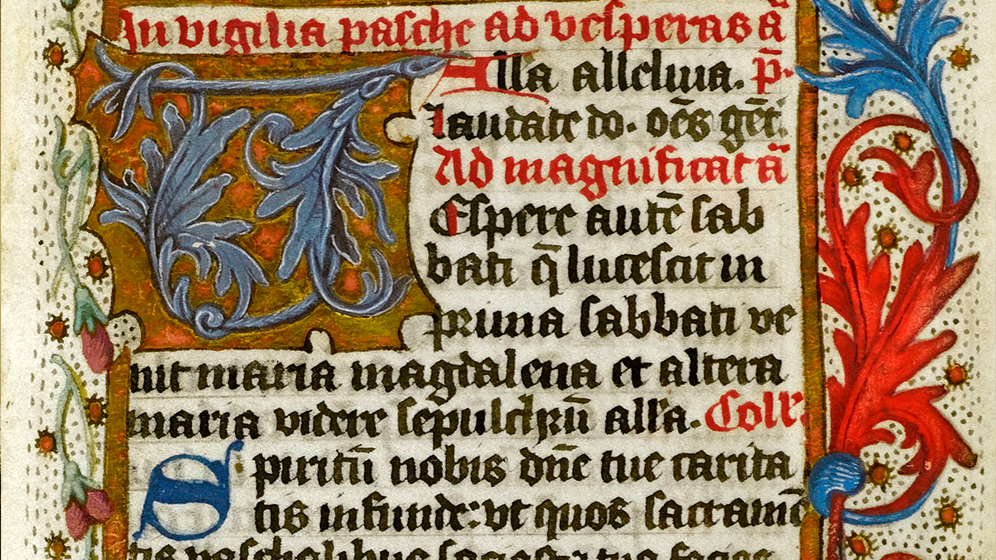 In vigilia pasche ad vesperas ā
Alla alleluia. p̄.
laudate do. oēs gēt.
Ad magnificat ā
Espere autē sab
bati q̄ lucescit in
prima sabbati ve
nit maria magdalena et altera
maria videre sepulchrū alla. Coll'.
Spiritū nobis dn̄e tue carita
tis infunde: vt quos sacramē
tis paschalibus